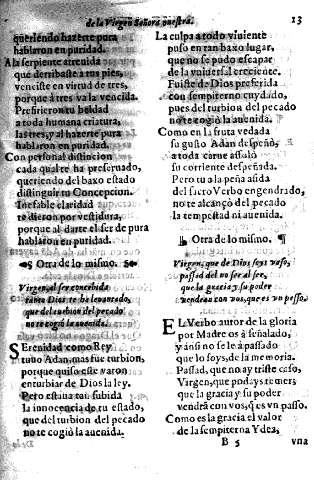 de la Virgen Señora nuestra. 13
queriendo hazerte pura
hablaron en puridad.
A la serpiente atreuida
que derribaste a tus pies,
venciste en virtud de tres,
porque a tres va la vencida.
Prefirieron tu beldad
a toda humana criatura,
las tres, y al hazerte pura
hablaron en puridad.
Con personal distincion
cada qual te ha preseruado,
queriendo del baxo estado
distinguir tu Concepcion.
Inefable claridad
te dieron por vestidura,
porque al darte el ser de pura
hablaron en puridad.
Otra de lo mismo.
Virgen, al ser concebida
tanto Dios te ha leuantado,
que del turbion del pecado
no te cogiò la auenida.
SErenidad como Rey
tuuo Adan, mas fue turbion,
porque quiso este varon
enturbiar de Dios la ley.
Pero estaua tan subida
la innocencia de tu estado,
que del turbion del pecado
no te cogiò la auenida.
La culpa a todo viuiente
puso en tan baxo lugar,
que no se pudo escapar
de la vniuersal creciente.
Fuiste de Dios preferida
con sempiterno cuydado,
pues del turbion del pecado
no te cogiò la auenida.
Como en la fruta vedada
su gusto Adan despeñò,
a toda carne assolò
su corriente despeñada.
Pero tu a la peña asida
del sacro Verbo engendrado,
no te alcançò del pecado
la tempestad ni auenida.
¶ Otra de lo mismo. ¶
Virgen, que de Dios soys vaso,
passad del no ser al ser,
que la gracia y su poder
vendran con vos, que es vn passo.
EL Verbo autor de la gloria
por Madre os à señalado,
y ansi no se le à passado
que lo soys, de la memoria.
Passad, que no ay triste caso,
Virgen, que podays temer,
que la gracia y su poder
vendrà con vos, q̃ es vn passo.
Como es la gracia el valor
de la sempiterna Ydea,
B 5 vna